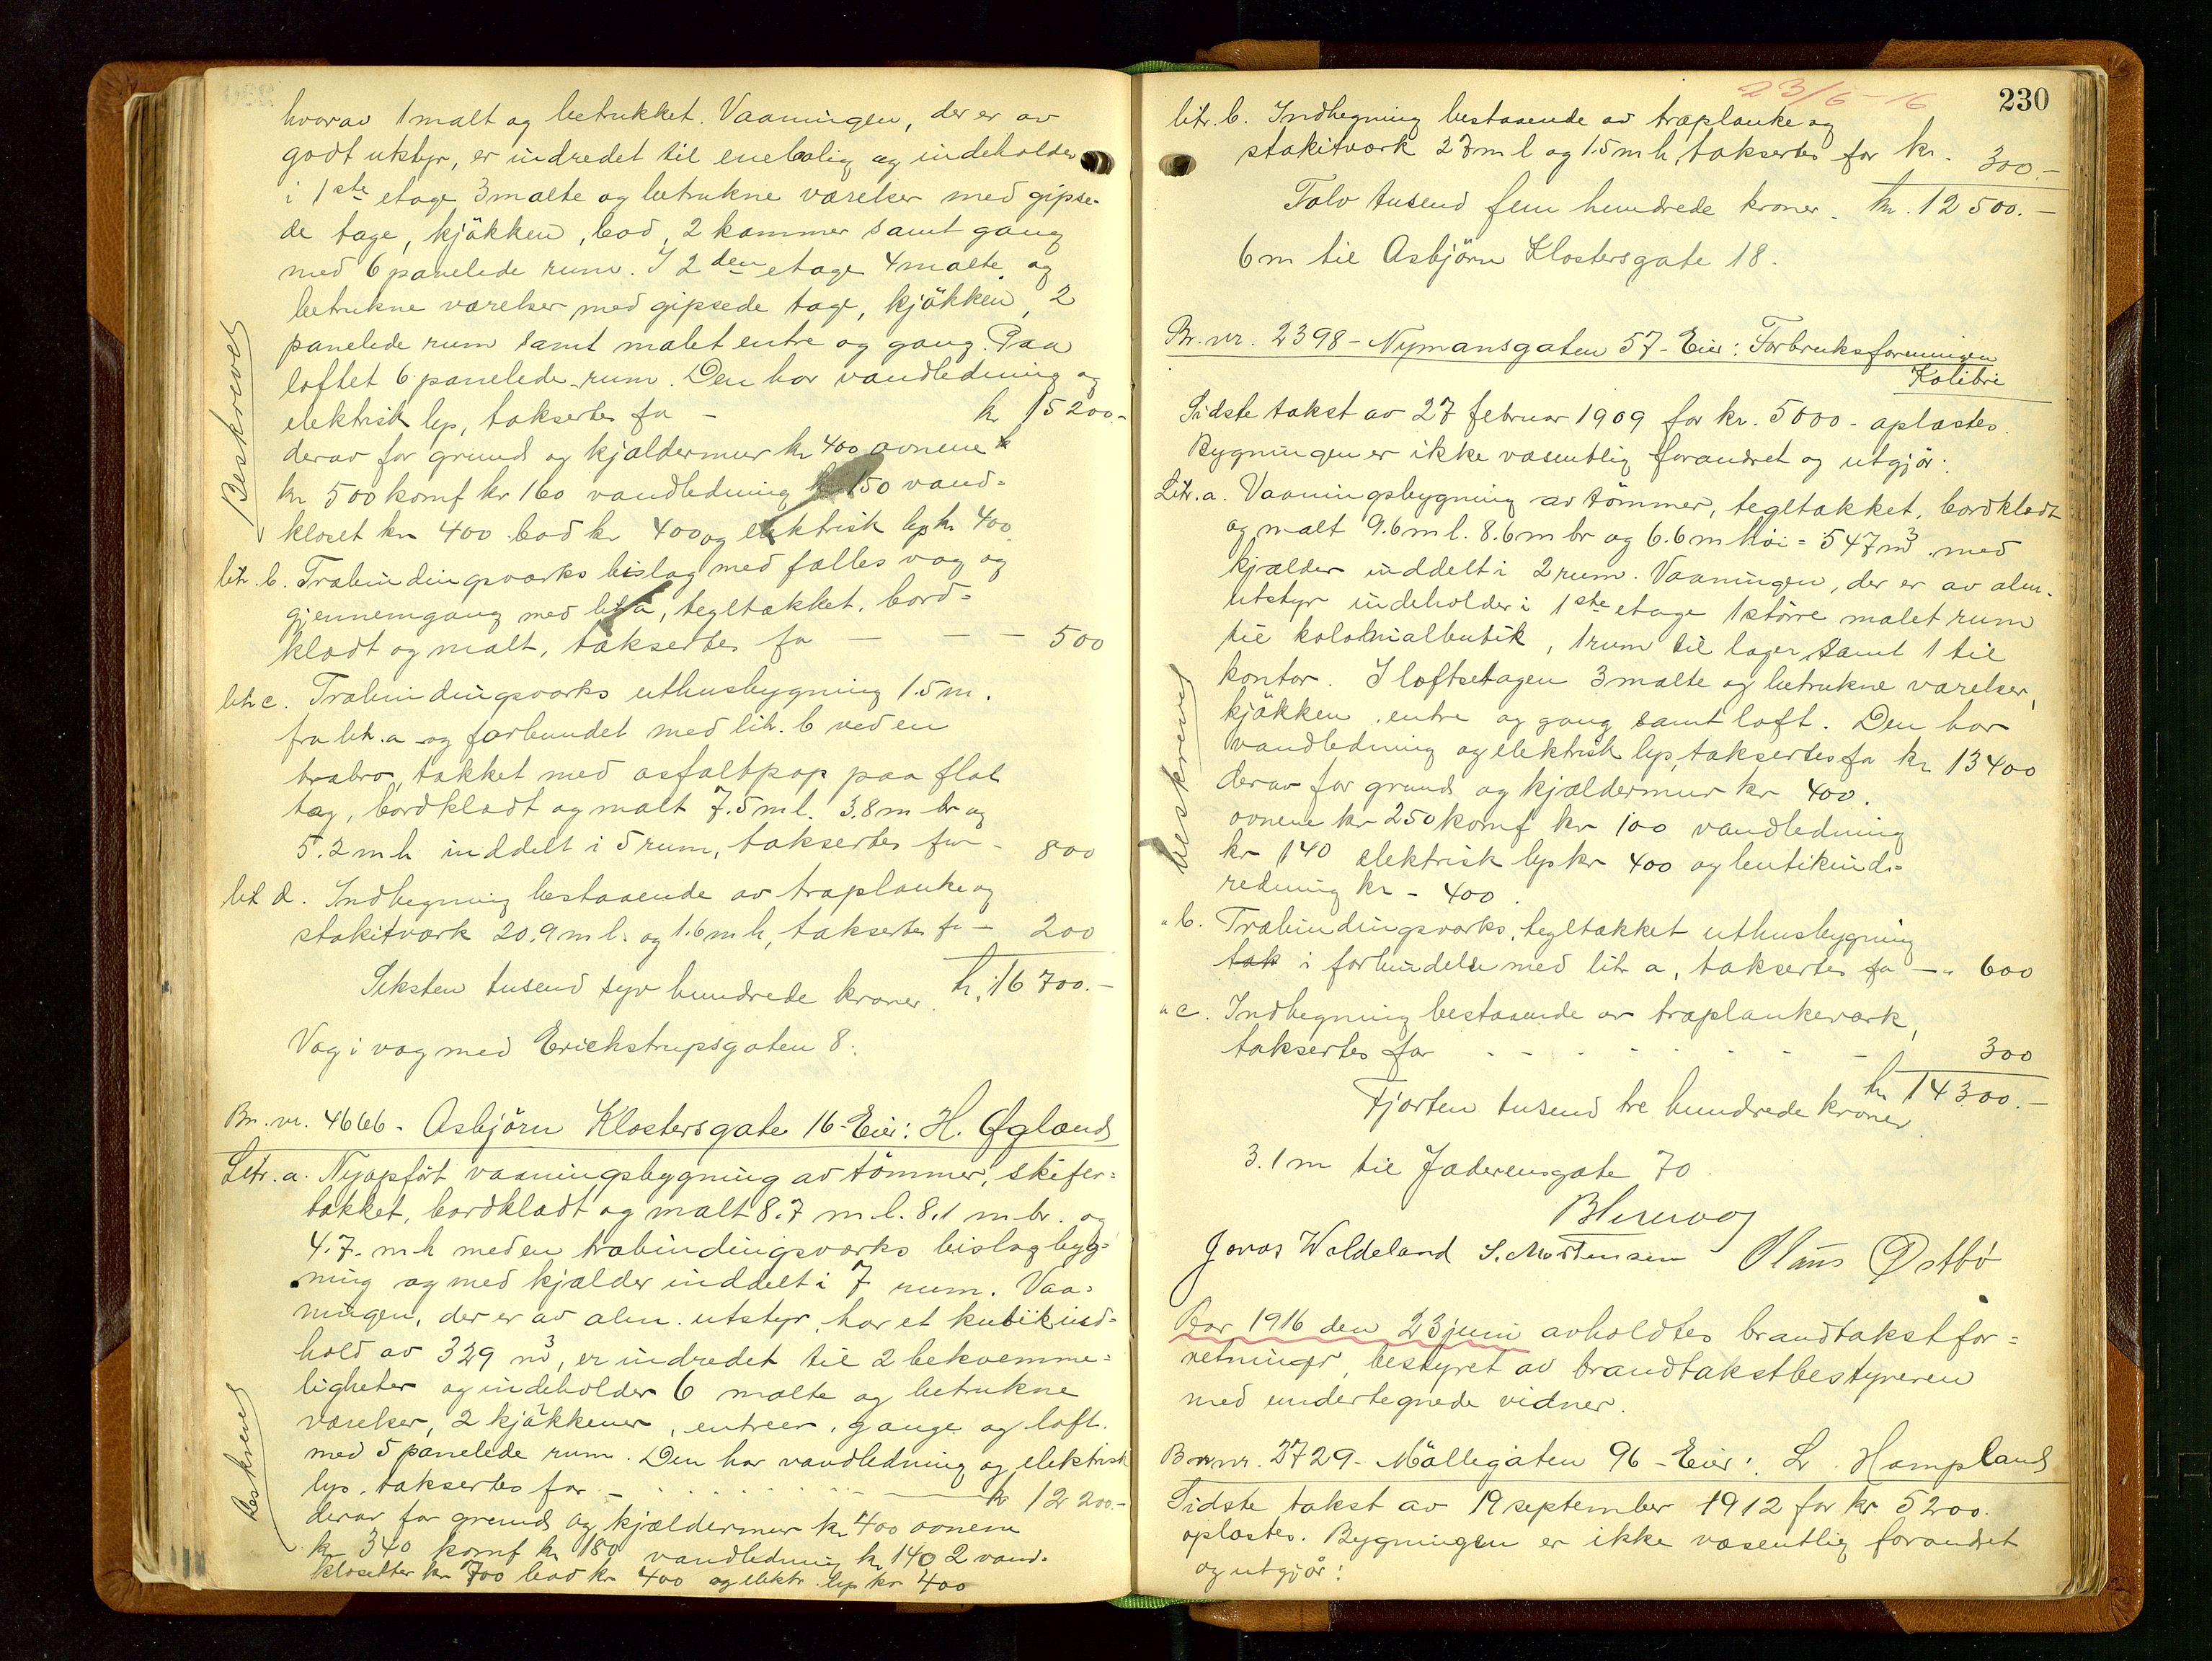 hvorav 1 malt og betrukket. Vaaningen, der er av
godt utstyr, er indredet til enebolig og indeholder
i 1ste etage 3 malte og betrukne værelser med gipse-
de tage, kjökken, bad, 2 kammer samt gang
med 6 panelede rum. I 2den etage 4 malte og
betrukne værelser med gipsede tage, kjökken, 2
panelede rum samt malet entre og gang. Paa
loftet 6 panelede rum. Den har vandledning og
elektrisk lys, taksertes for - kr 15200.-
derav for grund og kjældermur kr 400 ovnene
kr 500 komf kr 160 vandledning kr 150 vand-
kloset kr 400 bad kr 400 og elektrisk lys kr 400
Beskrevet
litr. b. Træbindingsværks bislag med fælles væg og
gjennemgang med litr a, tegltækket, bord-
klædt og malt, taksertes for - - - 500
litr c. Træbindingsværks uthusbygning 1.5 m.
fra litr. a og forbundet med litr. b ved en
træbro, tækket med asfaltpap paa flat
tag, bordklædt og malt 7.5 m l. 3.8 m br og
5.2 m h inddelt i 5 rum, taksertes for - 800
lit d. Indhegning bestaaende av træplanke og
stakitværk 20.9 m l. og 1.6 m h, taksertes for - 200
Seksten tusend syv hundrede kroner. kr. 16700.-
Væg i væg med Erichstrupsgaten 8.
Br. nr. 4666 - Asbjörn Klostersgate 16 - Eier: H. Øgland
Litr. a. Nyopfört vaaningsbygning av tömmer, skifer-
tækket, bordklædt og malt 8.7 m l. 8.1 m br. og
4.7. m h med en træbindingsværks bislagbyg-
ning og med kjælder inddelt i 7 rum. Vaa-
ningen, der er av alm. utstyr, har et kubikind-
hold av 329 m3, er indredet til 2 bekvemme-
ligheter og indeholder 6 malte og betrukne
værelser, 2 kjökkener, entreer, gange og loft
med 5 panelede rum. Den har vandledning og elektrisk
lys, taksertes for - kr 12200.-
derav for grund og kjældermur kr 400 ovnene
kr 340 komf kr 180 vandledning kr 140 2 vand-
klosetter kr 700 bad kr 400 og elektr. lys kr 400
beskrevet
23/6-16
230
litr. b. Indhegning bestaaende av træplanke og
stakitværk 27 m l og 1.5 m h, taksertes for kr. 300.-
Tolv tusend fem hundrede kroner. kr. 12500.-
6 m til Asbjörn Klostersgate 18.
Br. nr. 2398 - Nymansgaten 57 - Eier: Forbruksforeningen
Kolibri
Sidste takst av 27 februar 1909 for kr. 5000 - oplæstes.
Bygningen er ikke væsentlig forandret og utgjör:
Litr. a. Vaaningsbygning av tömmer, tegltækket, bordklædt
og malt 9.6 m l. 8.6 m br og 6.6 m höi = 547 m3 med
kjælder inddelt i 2 rum. Vaaningen, der er av alm.
utstyr indeholder i 1ste etage 1 större malet rum
til kolonialbutik, 1 rum til lager samt 1 til
kontor. I loftsetagen 3 malte og betrukne værelser,
kjökken, entre og gang samt loft. Den har
vandledning og elektrisk lys, taksertes for kr 13400
derav for grund og kjældermur kr 400.
ovnene kr 250 komf kr 100 vandledning
kr 140 elektrisk lys kr 400 og butikind-
redning kr - 400.
beskrevet
" b. Træbindingsværks, tegltækket uthusbygning
tak i forbindelse med litr a, taksertes for - " 600
" c. Indhegning bestaaende av træplankeværk,
taksertes for - - - - - - 300
Fjorten tusend tre hundrede kroner kr 14300.-
3.1 m til Jæderensgate 70.
Jonas Waldeland S. Mortensen Olaus Østbö
Aar 1916 den 23 juni avholdtes brandtakstfor-
retninger, bestyret av brandtakstbestyreren
med undertegnede vidner.
Br. nr. 2729 - Möllegaten 96 - Eier: L. Hampland
Sidste takst av 19 september 1912 for kr 5200
oplæstes. Bygningen er ikke væsentlig forandret
og utgjör: